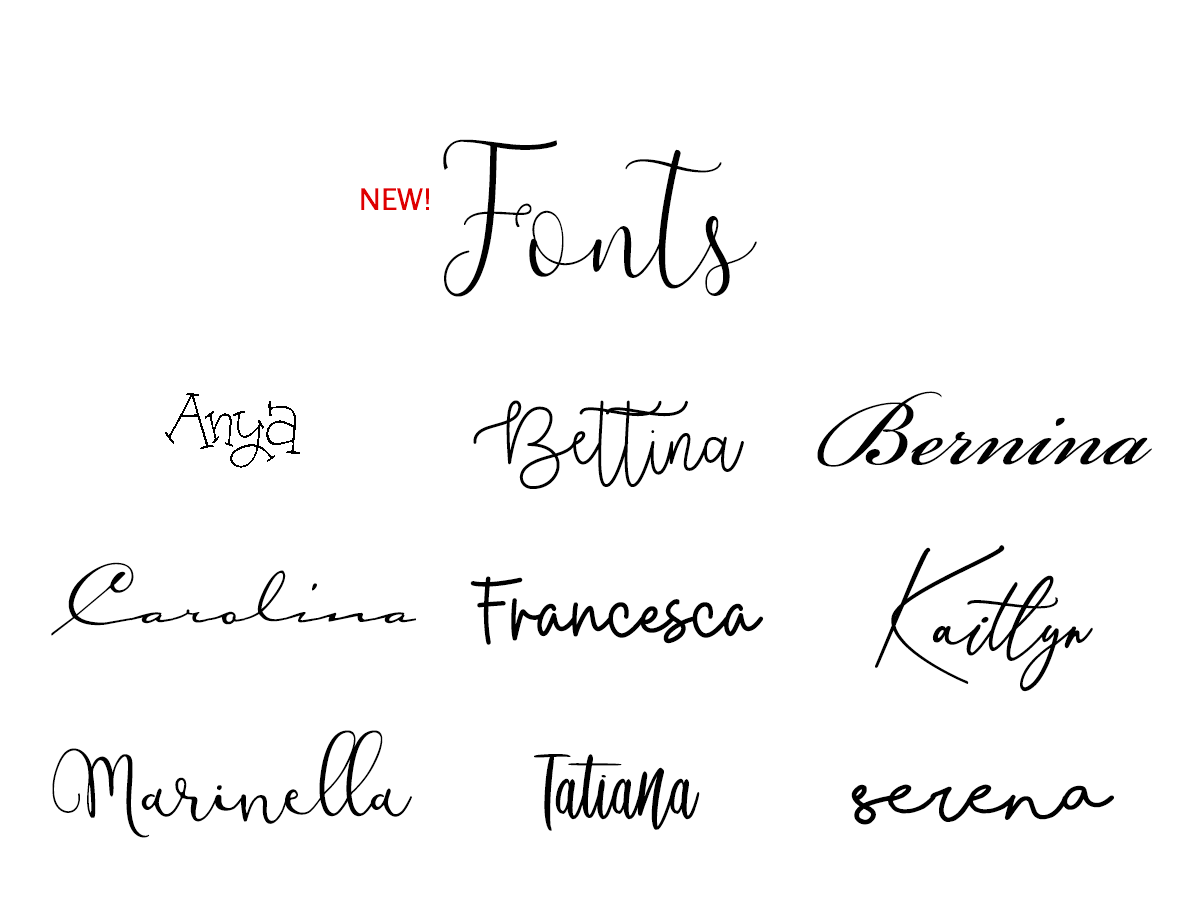 NEW! Fonts
Anya Bettina Bernina
Carolina Francesca Kaitlyn
Marinella Tatiana serena